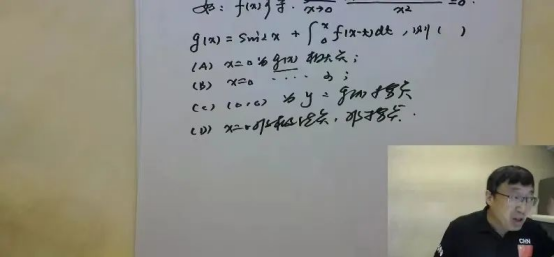 如: f(x) 可导. x→0 x² =0.
g(x) = sin2x + ∫₀ˣ f(x-t)dt, 则( )
(A) x=0 为 g(x) 极大点;
(B) x=0 ···· 小;
(C) (0,0) 为 y = g(x) 拐点
(D) x=0 非极值点, 非拐点.
CHN